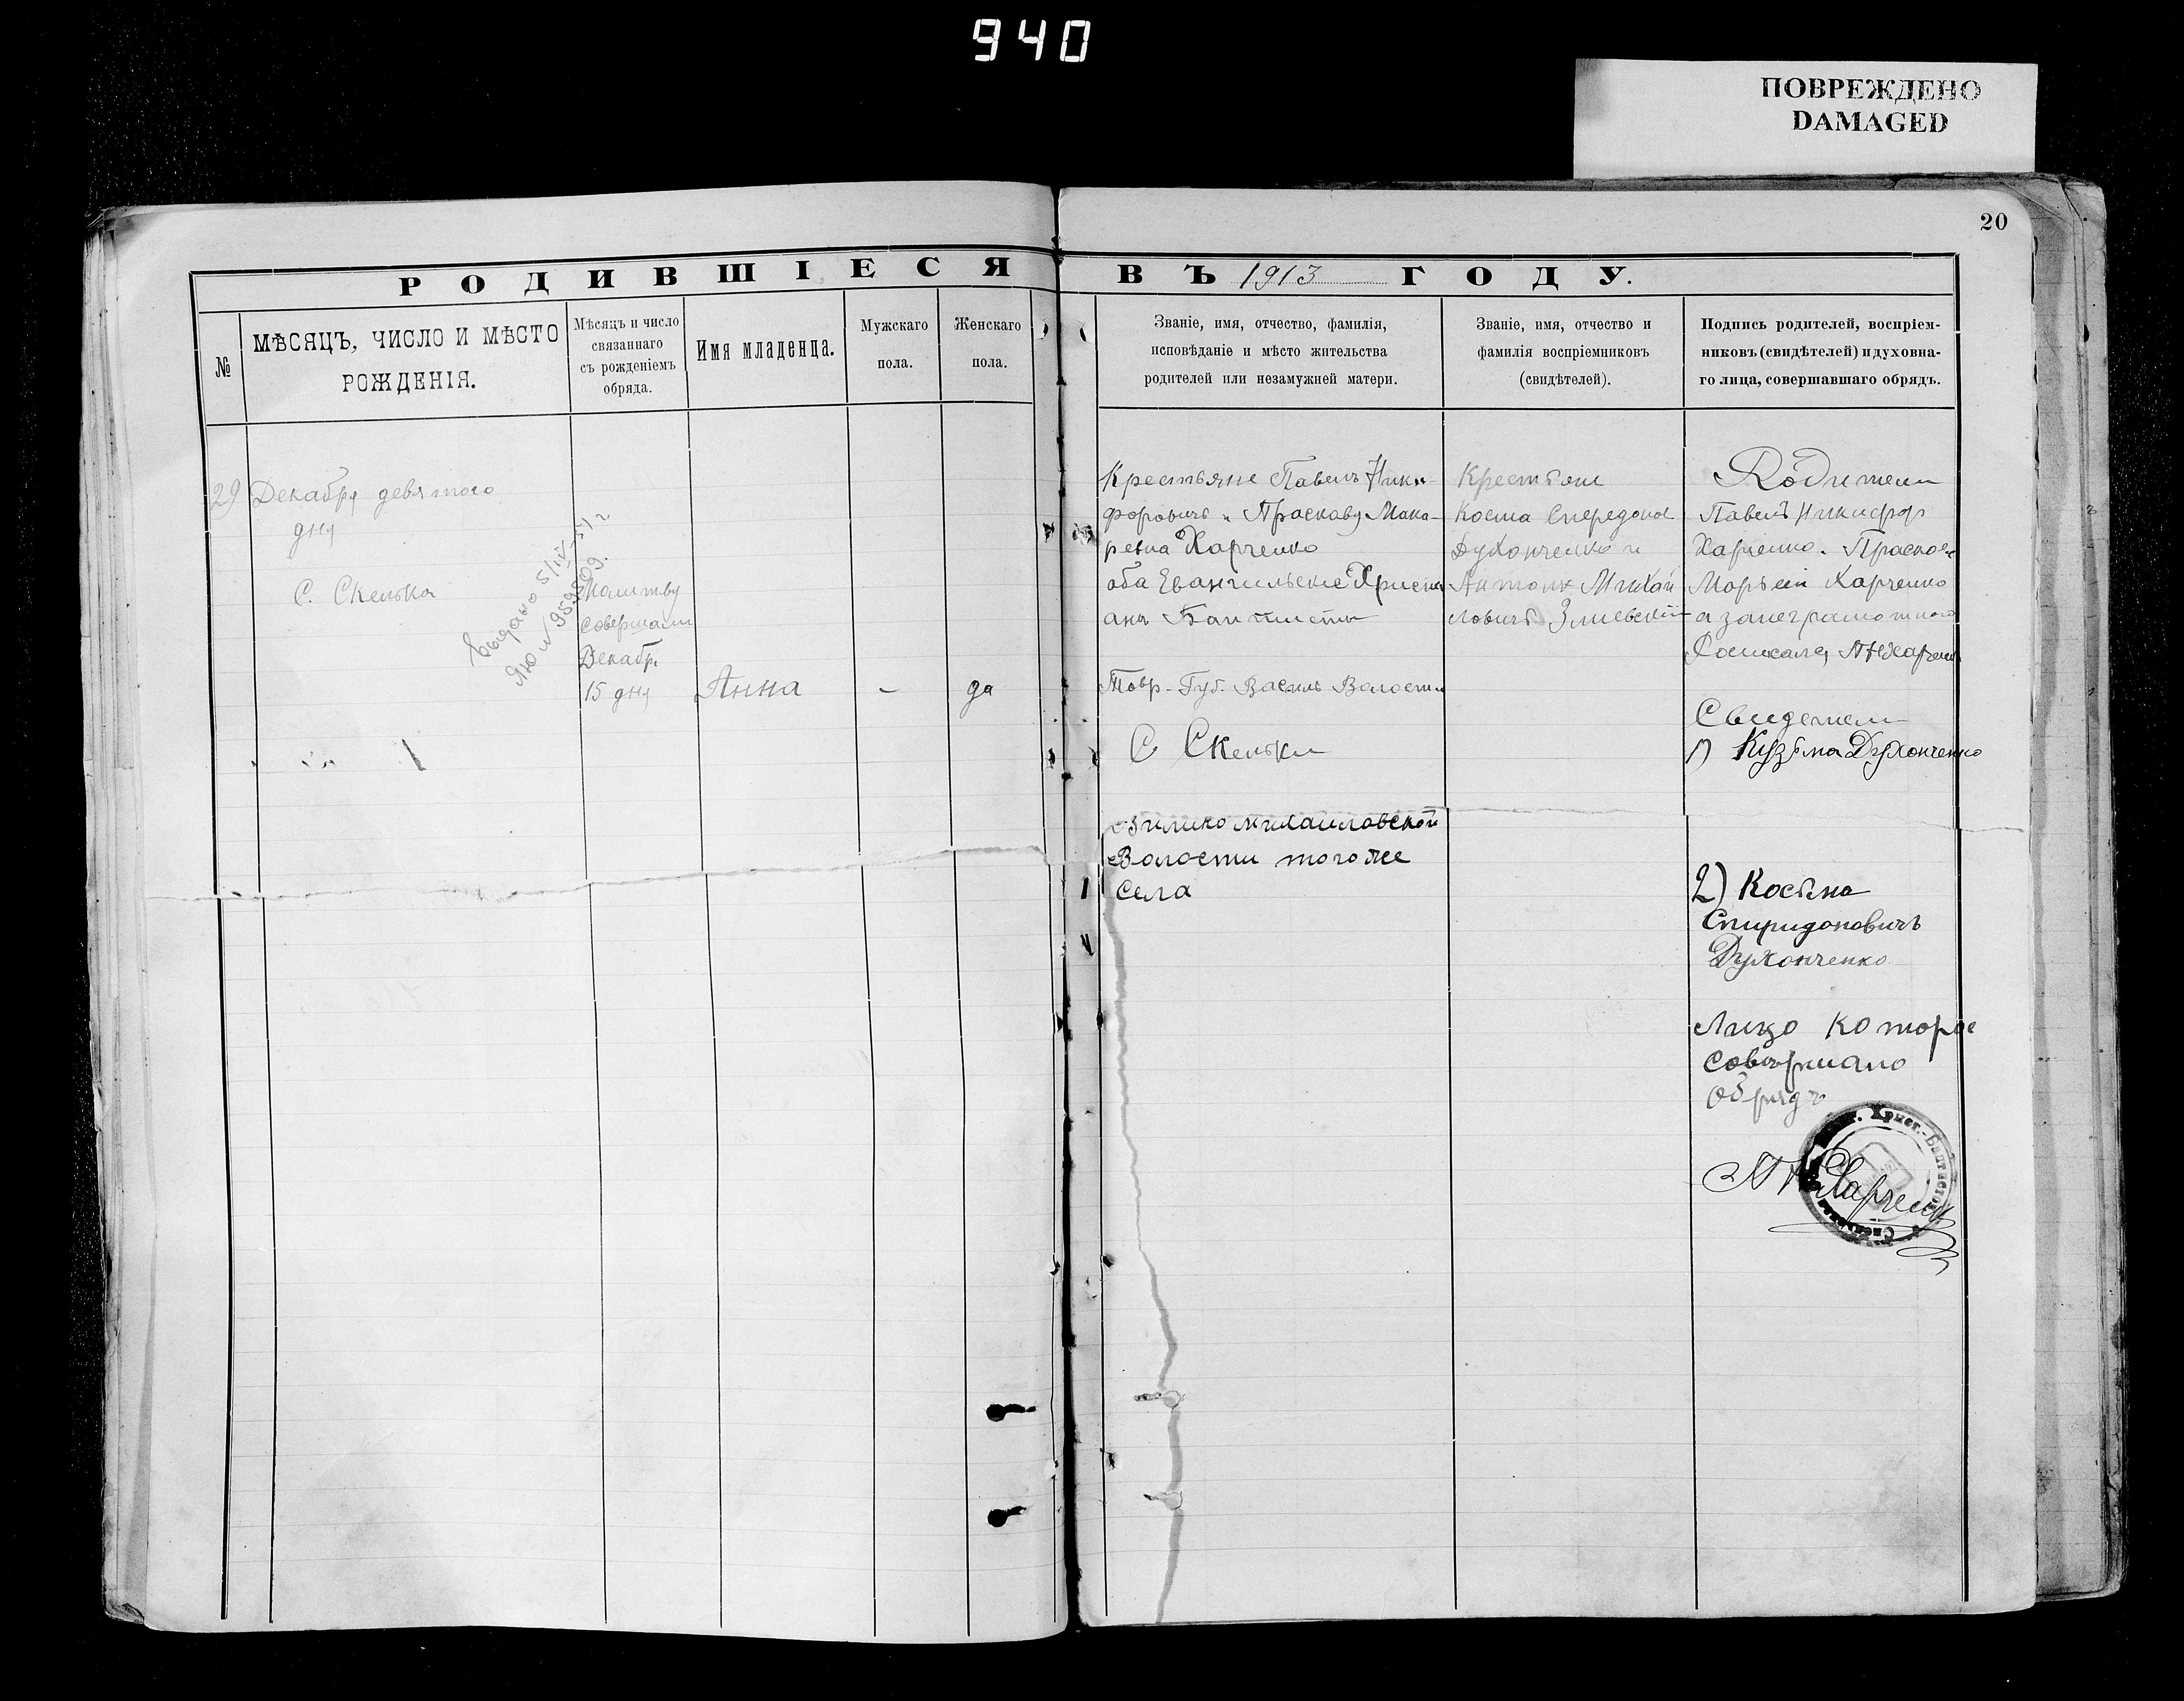 940
ПОВРЕЖДЕНО
DAMAGED
20
РОДИВШІЕСЯ ВЪ 1913 ГОДУ.
№
МѢСЯЦЪ, ЧИСЛО И МѢСТО
РОЖДЕНІЯ.
Мѣсяцъ и число
связаннаго
съ рожденіемъ
обряда.
Имя младенца.
Мужскаго
пола.
Женскаго
пола.
Званіе, имя, отчество, фамилія,
исповѣданіе и мѣсто жительства
родителей или незамужней матери.
Званіе, имя, отчество и
фамилія воспріемниковъ
(свидѣтелей).
Подпись родителей, воспріем-
никовъ (свидѣтелей) и духовна-
го лица, совершавшаго обрядъ.
29 Декабря девятого
дня
С. Скелька
Выдано 5/IV-51 г
ЯЮ № 959509.
Молитву
совершали
Декабр.
15 дня
Анна
-
да
Крестьяне Павелъ Ники-
форовичъ и Праскавя Мака-
ревна Харченко
оба Евангильские Христи
анъ Баптисты
Товр-Губ. Василь Волости
С Скельки
Михаиловской
Волости того же
села
Крестьяне
Косма
Духонченко и
Антонъ Михаи
ловичъ Змиевский
Родители
Павелъ Никифор
Харченко.
Харченко
а занеграмотного
Свидетели
1) Кузьма Духонченко
2) Косьма
Спиридоновичъ
Духонченко
Лицо которое
совершало
обрядъ
Харченко
Христ.-Баптистов